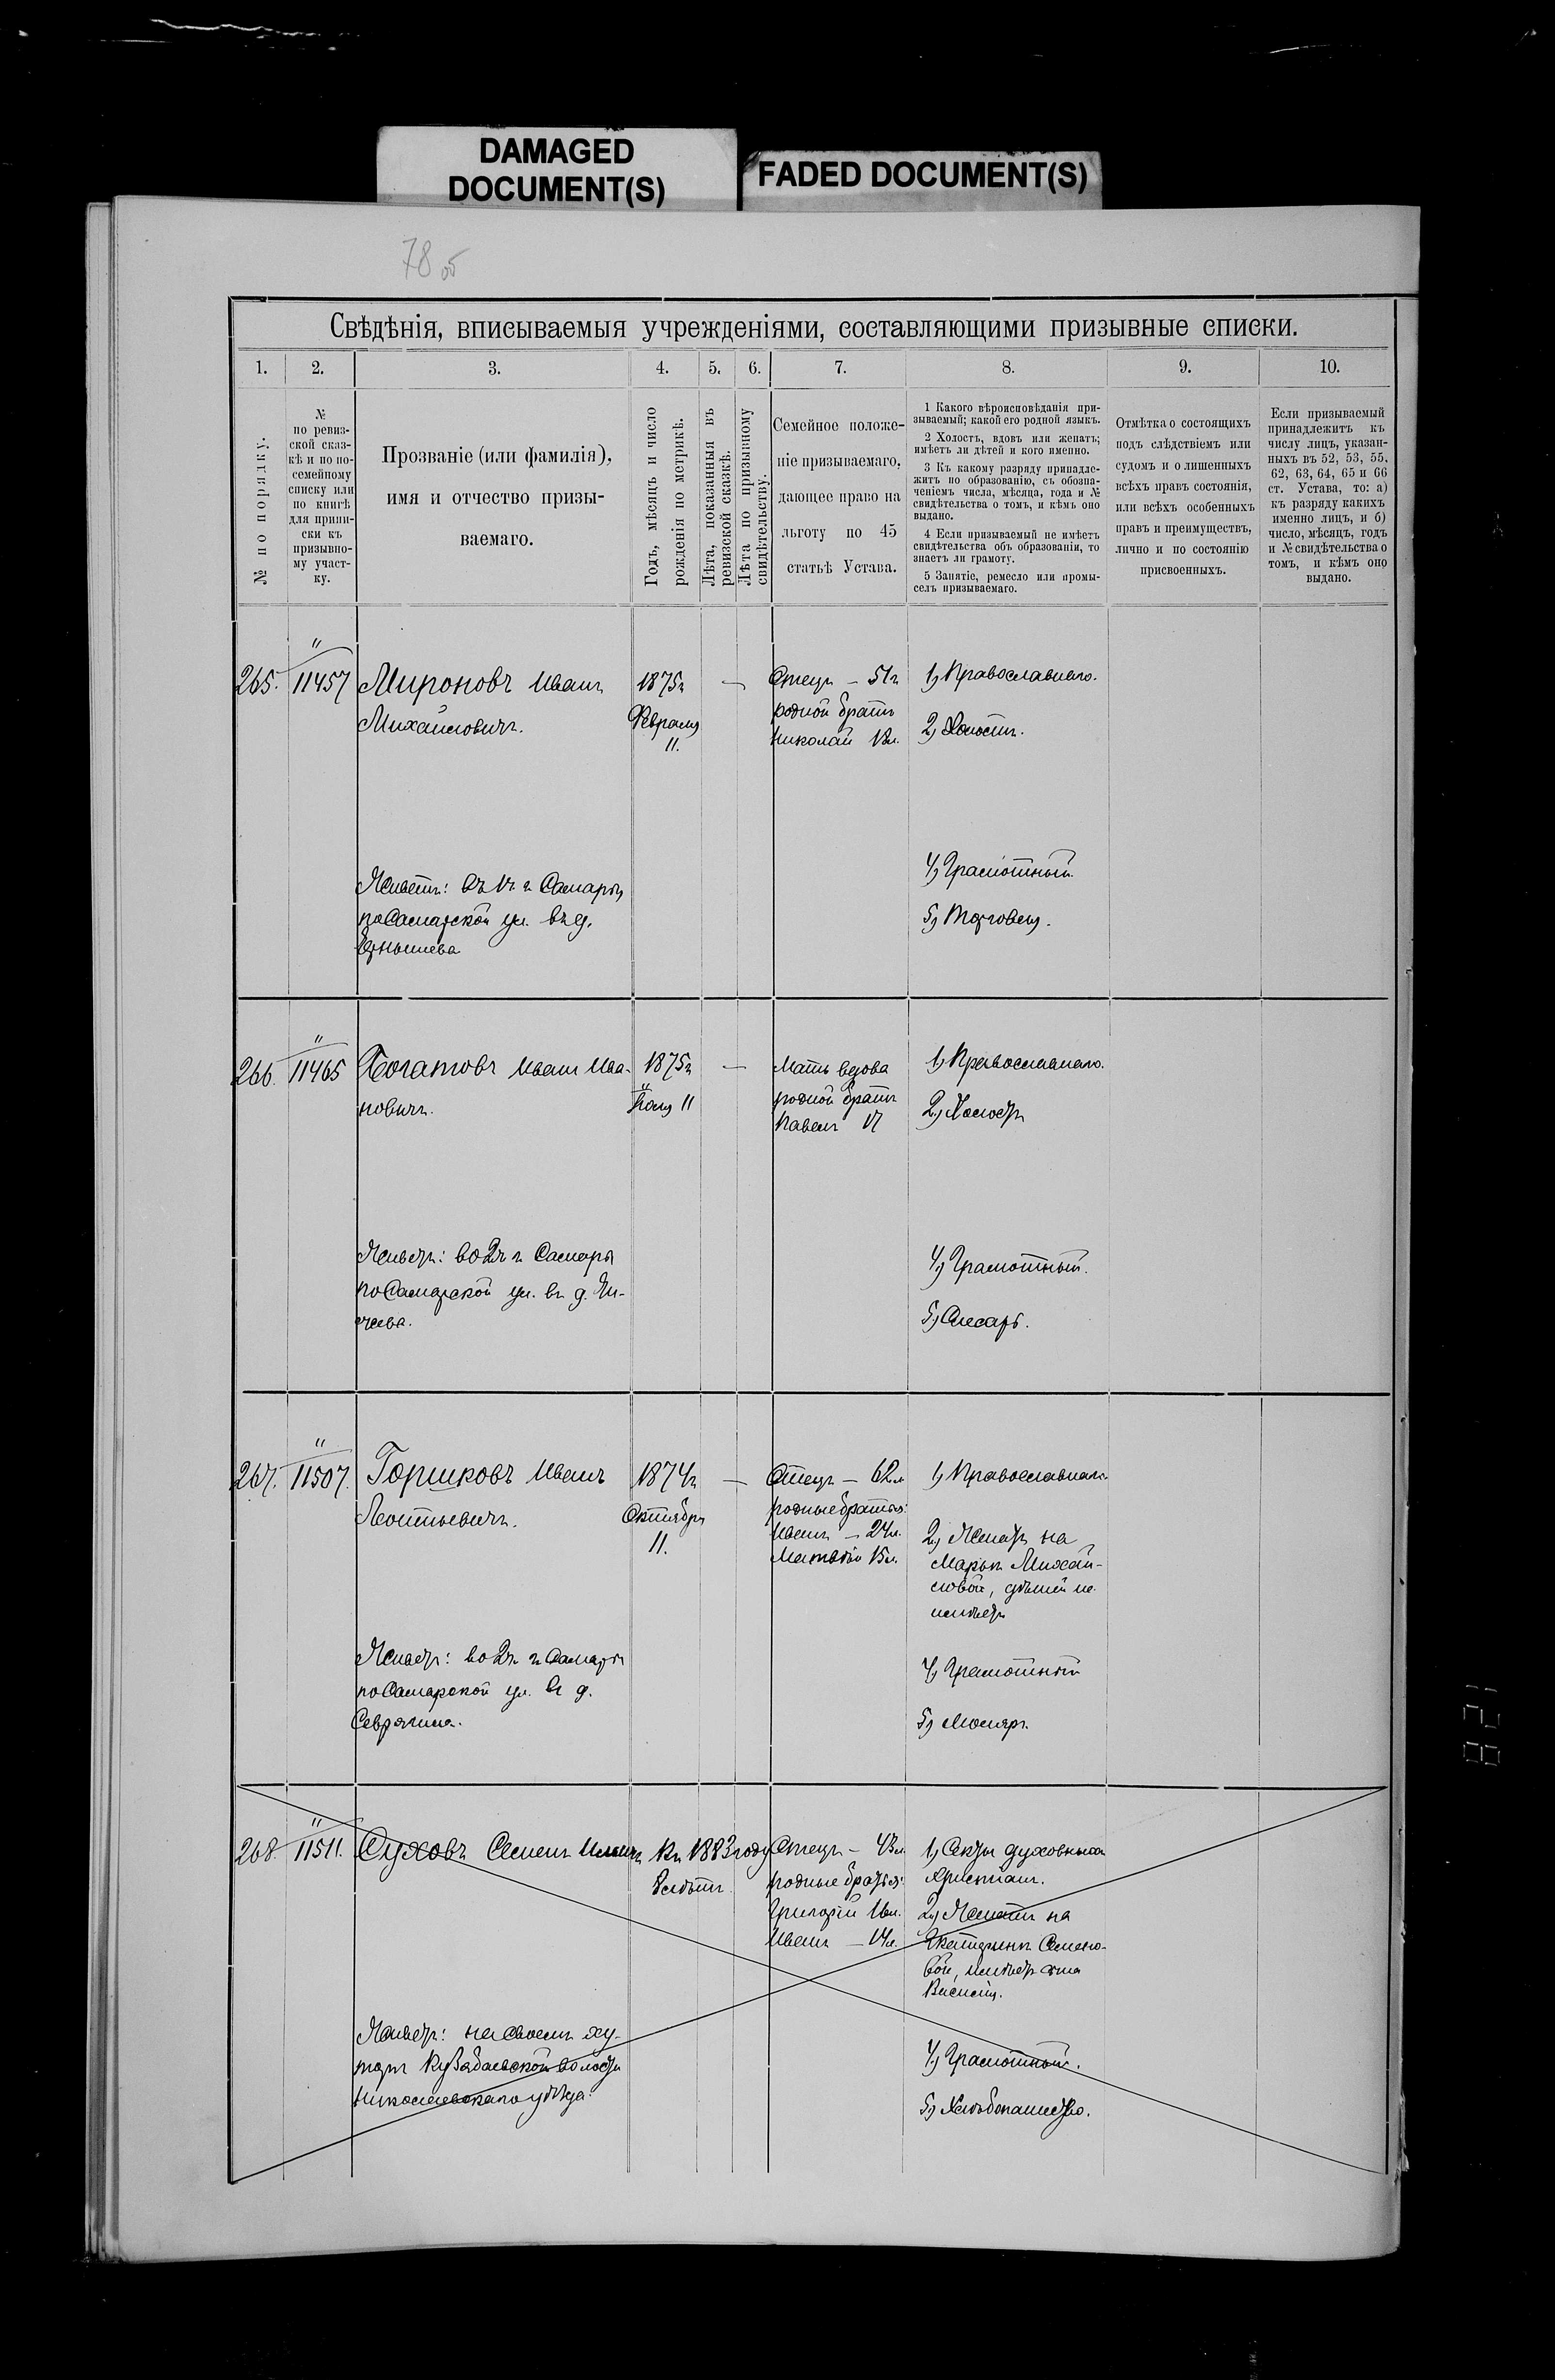 DAMAGED
DOCUMENT(S)
FADED DOCUMENT(S)
78 об
Свѣдѣнія, вписываемыя учрежденіями, составляющими призывные списки.
1. 2. 3. 4. 5. 6. 7. 8. 9. 10.
№ по порядку.
№
по ревиз-
ской сказ-
кѣ и по по-
семейному
списку или
по книгѣ
для припи-
ски къ
призывно-
му участ-
ку.
Прозваніе (или фамилія),
имя и отчество призы-
ваемаго.
Годъ, мѣсяцъ и число
рожденія по метрикѣ.
Лѣта, показанныя въ
ревизской сказкѣ.
Лѣта по призывному
свидѣтельству.
Семейное положе-
ніе призываемаго,
дающее право на
льготу по 45
статьѣ Устава.
1 Какого вѣроисповѣданія при-
зываемый; какой его родной языкъ.
2 Холостъ, вдовъ или женатъ;
имѣетъ ли дѣтей и кого именно.
3 Къ какому разряду принадле-
житъ по образованію, съ обозна-
ченіемъ числа, мѣсяца, года и №
свидѣтельства о томъ, и кѣмъ оно
выдано.
4 Если призываемый не имѣетъ
свидѣтельства объ образованіи, то
знаетъ ли грамоту.
5 Занятіе, ремесло или промы-
селъ призываемаго.
Отмѣтка о состоящихъ
подъ слѣдствіемъ или
судомъ и о лишенныхъ
всѣхъ правъ состоянія,
или всѣхъ особенныхъ
правъ и преимуществъ,
лично и по состоянію
присвоенныхъ.
Если призываемый
принадлежитъ къ
числу лицъ, указан-
ныхъ въ 52, 53, 55,
62, 63, 64, 65 и 66
ст. Устава, то: а)
къ разряду какихъ
именно лицъ, и б)
число, мѣсяцъ, годъ
и № свидѣтельства о
томъ, и кѣмъ оно
выдано.
265. 11457 Мироновъ Иванъ
Михайловичъ.
1875г
Февраля
11.
—
Отецъ – 51г
родной братъ
Николай 13л.
1) Православнаго.
2) Холостъ.
4) Грамотный.
5) Торговецъ.
Живетъ: въ 1ч г Самары
по Самарской ул. въ д.
266. 11465 Богатовъ Иванъ Ива-
новичъ.
1875г
11
—
Мать вдова
родной братъ
Павелъ 17
1) Православнаго.
2) Холостъ
4) Грамотный.
5) Слесарь.
Живетъ: во 2ч г Самары
по Самарской ул. въ д.
267. 11507. Горшковъ Иванъ
Леонтьевичъ.
1874г
Октября
11.
—
Отецъ – 62л
родные братья:
Иванъ – 24л.
Матвѣй 15л.
1) Православнаго
2) Женатъ на
Марьѣ Михай-
ловой, дѣтей не
имѣетъ
4) Грамотный
5) Моляръ.
Живетъ: во 2ч г Самары
по Самарской ул. въ д.
268. 11511. Суховъ Семенъ Ильичъ
Къ 1883 году
8 лѣтъ
Отецъ – 43л
родные братья:
Григорій 16л.
Иванъ – 14л.
1) Секты духовныхъ
христіанъ.
2) Женатъ на
Екатеринѣ Семено-
вой, имѣетъ сына
Василія.
4) Грамотный.
5) Хлѣбопашество.
Живетъ: на своемъ ху-
торѣ Кузабаевской волости
Николаевскаго уѣзда.
821